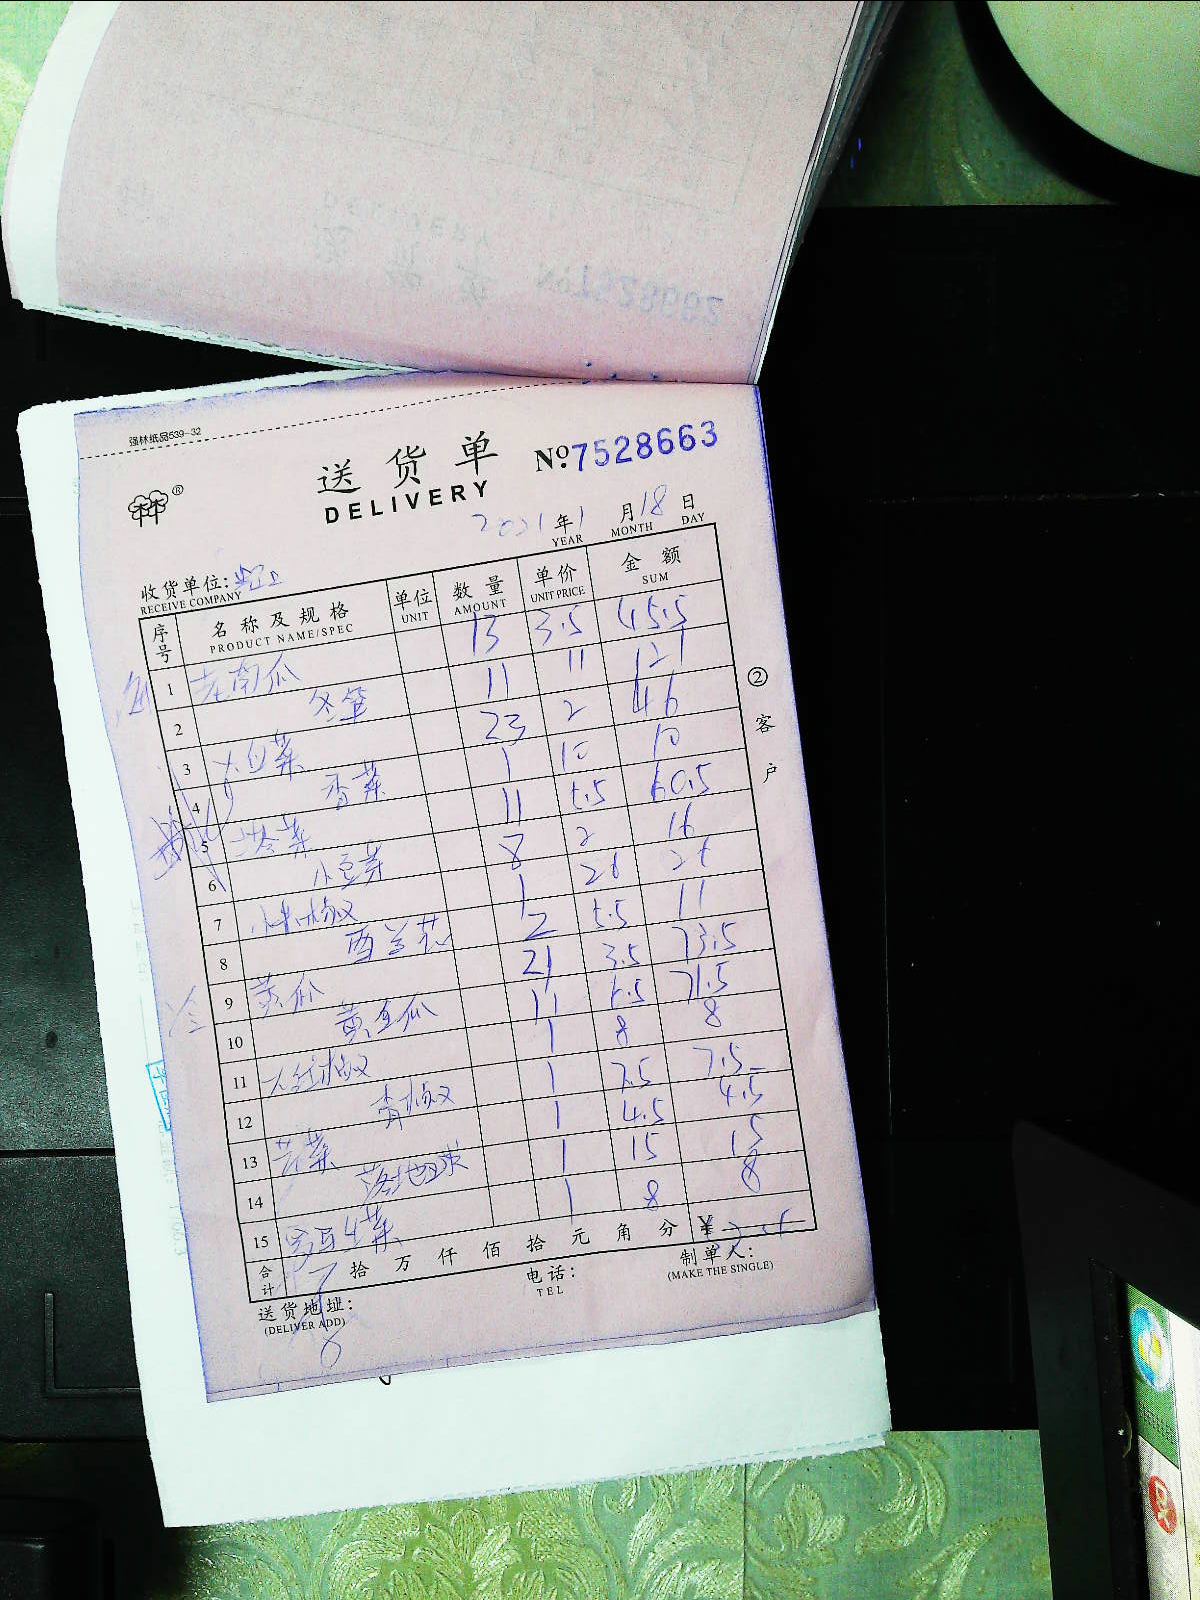 强林纸品539-32
送货单
DELIVERY
No.7528663
2021年1月18日
YEAR MONTH DAY
收货单位:
RECEIVE COMPANY
序号 名称及规格 单位 数量 单价 金额
PRODUCT NAME/SPEC UNIT AMOUNT UNIT PRICE SUM
1 老南瓜 13 3.5 45.5
2 冬笋 11 11 121
3 大白菜 23 2 46
4 香菜 1 10 10
5 11 5.5 60.5
6 小豆芽 8 2 16
7 小米椒 1 26 26
8 西兰花 2 5.5 11
9 黄瓜 21 3.5 73.5
10 黄金瓜 11 6.5 71.5
11 大红椒 1 8 8
12 青椒 1 7.5 7.5
13 芹菜 1 4.5 4.5
14 1 15 15
15 生菜 1 8 8
合计 拾万仟佰拾元角分 ¥
送货地址:
(DELIVER ADD)
电话:
TEL
制单人:
(MAKE THE SINGLE)
②客户